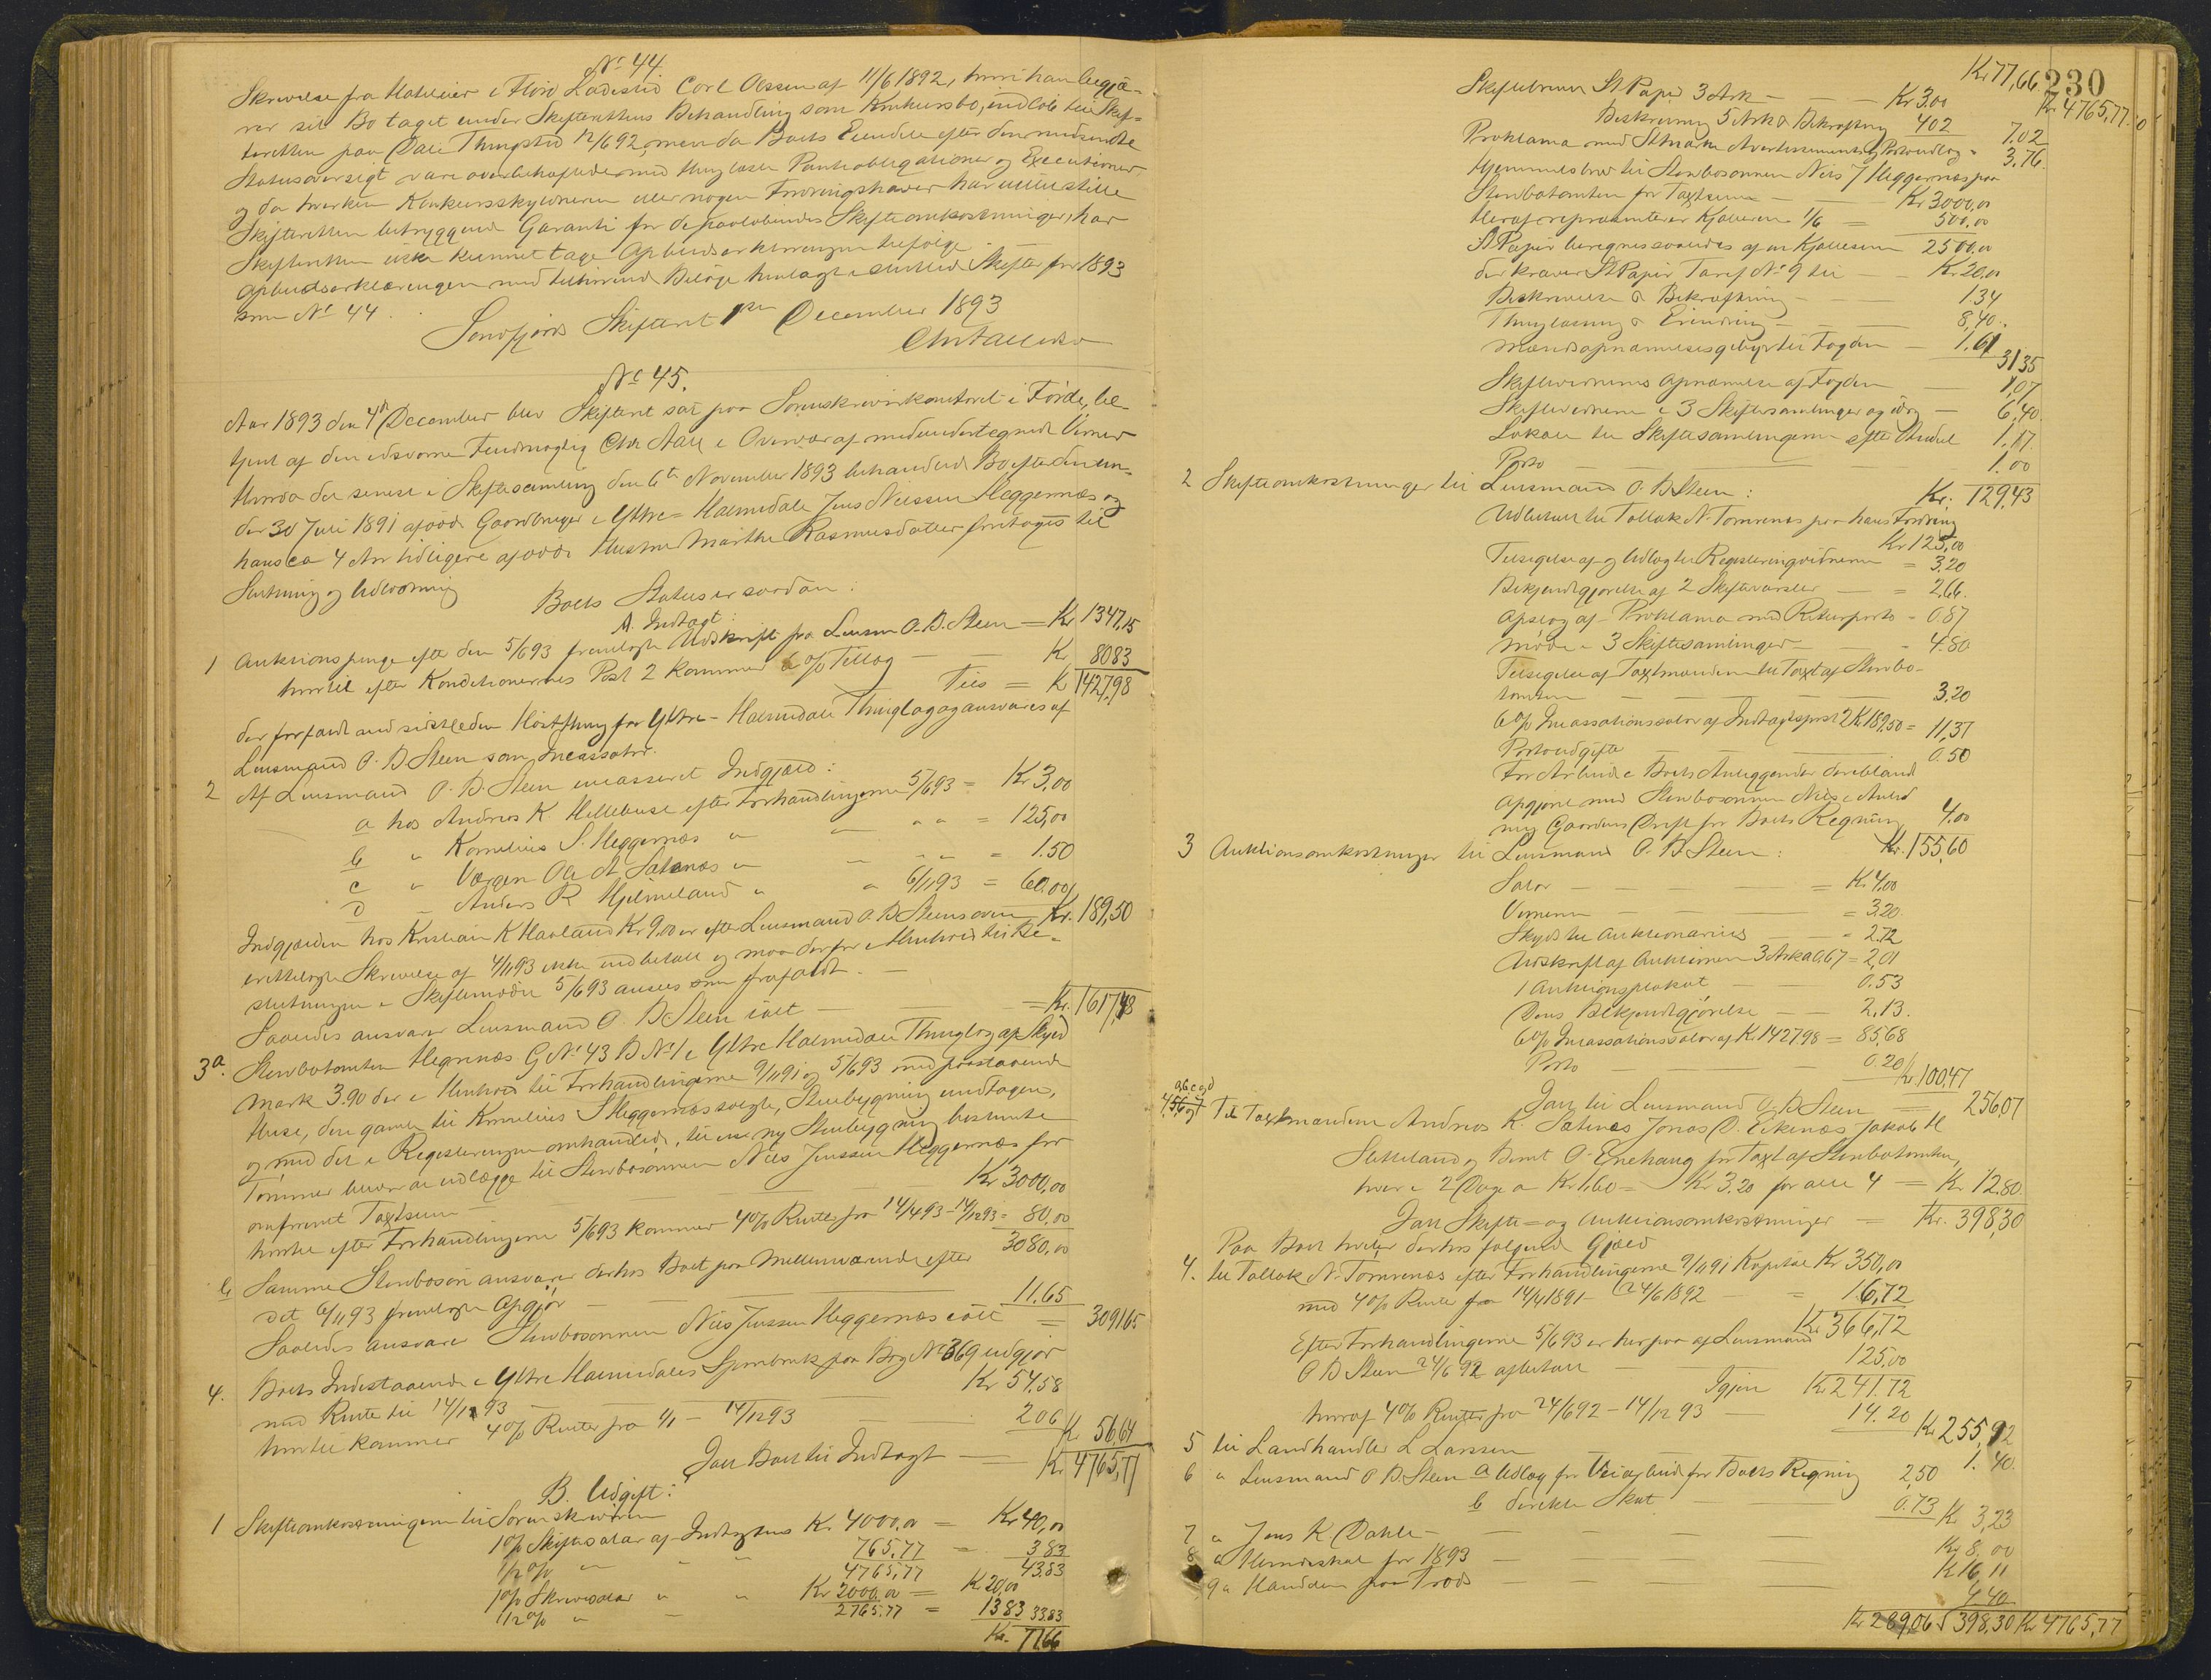 No 44.
Skrivelse fra Hotelleier i Florø Ladested Carl Olssen af 11/6 1892, hvori han begjæ-
rer sit Bo taget under Skifterettens Behandling som Konkursbo, indløb til Skif-
teretten paa Dale Thingsted 12/6 92, men da Boets Eiendele efter den medsendte
Statusoversigt vare overbehæftede med thinglæste Panteobligationer og Executioner
og da hverken Konkursskyldneren eller nogen Fordringshaver har villet stille
Skifteretten betryggende Garanti for de paaløbende Skifteomkostninger, har
Skifteretten ikke kunnet tage Opbudserklæringen tilfølge.
Opbudserklæringen med tilhørende Bilage henlagt i sluttede Skifter for 1893
som No 44.
Søndfjords Skifteret 1ste December 1893
Chr Aall
No 45.
Aar 1893 den 4de December blev Skifteret sat paa Sorenskriverkontoret i Førde, be-
tjent af den edsvorne Fuldmægtig Chr Aall i Overvær af medundertegnede Vidner
Hvorda det senest i Skiftesamling den 6te November 1893 behandlede Bo efter den un-
der 30 Juli 1891 afdøde Gaardbruger i Yttre-Holmedale Jens Nilssen Heggernæs og
hans ca 4 Aar tidligere afdøde Hustru Marthe Rasmusdatter foretoges til
Slutning og Udlodning
Boets Status er saadan:
A. Indtægt:
1 Auktionspenge efter den 5/6 93 fremlagte Udskrift fra Lensm O. B. Steen = Kr 1347,15
hvortil efter Konditionernes Post 2 kommer 6 % Tillæg — — Kr 80 83
Tils = Kr 1427,98
der forfaldt ved sidstleden Høstthing for Yttre-Holmedale Thinglag og ansvares af
Lensmand O. B. Steen som Incassator.
2 Af Lensmand O. B. Steen incasseret Indgjæld:
a hos Andreas K. Hellebust efter Forhandlingerne 5/6 93 = Kr 3,00
b " Kornelius S. Heggernæs " — " " = 125,00
c " Værgen Ole A Satenæs " — " " = 1.50
d " Anders R Hjelmeland " " 6/11 93 = 60,00 Kr. 189,50
Indgjælden hos Kristian K Havland Kr 9.00 er efter Lensmand O. B Steens oven
skrivelse af 4/11 93 ikke indbetalt og maa derfor i Henhold til Be-
slutningen i Skiftemødet 5/6 93 ansees som frafaldt. —
Saaledes ansvarer Lensmand O. B Steen ialt — — = Kr. 1617,48
3 a. Stervbotomten Heggernæs G No 43 B No 1 i Yttre Holmedale Thinglag af Skyld
Mark 3.90 der i Henhold til Forhandlingerne 9/11 91 og 5/6 93 med paastaaende
Huse, den gamle til Kornelius S Heggernæs solgte, Stuebygning undtagen,
og med det i Registreringen omhandlede, til en ny Stuebygning bestemte
Tømmer bliver at udlægge til Stervbosønnen Nils Jenssen Heggernæs for
omforenet Taxtsum — — — — Kr 3000,00
hvortil efter Forhandlingerne 5/6 93 kommer 4% Renter fra 14/4 93 - 14/12 93 = 80,00
3080,00
b Samme Stervbosøn ansvarer derhos Boet paa Mellemværende efter
det 6/11 93 fremlagte Opgjør — — 11.65
Saaledes ansvarer Stervbosønnen Nils Jenssen Heggernæs ialt = 3091 65
4. Boets Indestaaende i Yttre Holmedales Sparebank paa Bog No 369 udgjør
med Rente til 14/12 93 — — Kr 54.58
hvortil kommer 4% Renter fra 1/1 - 14/12 93 — 2 06 Kr 56,64
Har Boet til Indtægt — Kr 4765,77
B. Udgift:
1 Skifteomkostningerne til Sorenskriveren
1% Skiftesalær af Indtægtens Kr. 4000.00 = Kr 40,00
1/2 % " " " 765,77 = 3 83
4765,77 43.83
1% Skriversalær " " Kr 2000.00 = Kr 20,00
1/2 % " " 2765.77 = 13 83 33.83
Kr. 77.66
230
Kr 77,66 Kr. 4765,77
Skiftebrevet St Papir 3 Ark — — Kr 3.00
Beskrivning 5 Ark & Bekræftning 4 02 7.02
Proklama med Stmærke Avertissement og Portoudlæg = 3.76.
Hjemmelsbrev til Stervbosønnen Nils J Heggernæs paa
Stervbotomten for Taxtsum — — Kr 3000,00
Heraf repræsenterer Kjøberen 1/6 = 500,00
St Papir beregnes saaledes af en Kjøbesum 2500,00
der kræver St Papir Tarif No 9 til — Kr 20,00
Beskrivelse & Bekræftning — — 1.34
Thinglæsning & Erindring — — 8,40.
Mandsopnævnelsesgebyr til Fogden — 1.61 31 35
Skiftevidnernes Opnævnelse af Fogden — 1,07
Skiftevidnerne i 3 Skiftesamlinger og idag — 6,40.
Lokale til Skiftesamlingerne efter Andel 1,17.
Porto — — — 1.00
Kr: 129,43
2 Skifteomkostninger til Lensmand O. B Steen:
Udbetalt til Tollak N. Tornenæs paa hans Fordring
Kr 125,00
Tilsigelse af og Udlæg til Registreringsvidnerne = 3.20
Bekjendtgjørelse af 2 Skiftevarsler — = 2,66.
Opslag af Proklama med Returporto - 0.87
Møde i 3 Skiftesamlinger — - 4.80
Tilsigelse af Taxtmændene til Taxt af Stervbo-
tomten — — — 3.20
6% Incassationssalær af Indtægtspost 2 Kr 189,50 = 11,37
Portoudgifte — — 0.50
For Arbeide i Boets Anliggender deriblandt
Opgjøret med Stervbosønnen Nils i Anled
ning Gaardens Drift for Boets Regning 4.00
Kr. 155,60
3 Auktionsomkostninger til Lensmand O. B. Steen:
Salær — — = Kr 4.00
Vidnerne — — = 3.20.
Skyds til Auktionarius — - 2.72
Udskrift af Auktionen 3 Ark a 0,67 = 2,01
1 Auktionsplakat — — 0.53
Dens Bekjendtgjørelse — — 2,13.
6% Incassationssalær af Kr. 1427 98 = 85,68
Porto — — 0.20 Kr. 100,47
Har til Lensmand O. B Steen — = 256,07
a, b, c og d
Til Taxtmændene Andreas K. Satenæs Jonas D. Eikenæs Jakob H
Sletteland og Bernt O. Enehaug for Taxt af Stervbotomten,
hver i 2 Dage a Kr 1.60 = Kr 3.20 for alle 4 — = Kr 12.80.
Har Skifte- og Auktionsomkostninger — = Kr. 398,30
Paa Boet hviler derhos følgende Gjæld
4. til Tollak N. Tornenæs efter Forhandlingerne 9/11 91 Kapital Kr 350,00
med 4% Rente fra 14/4 1891 - 24/6 1892 — = 16,72
Kr 366,72
Efter Forhandlingerne 5/6 93 er herpaa af Lensmand
O B Steen 24/6 92 afbetalt — — 125,00
Igjen Kr 241.72
hvoraf 4% Renter fra 24/6 92 - 14/12 93 — 14.20 Kr 255,92
5 til Landhandler L Larssen — — — 1. 40.
6 " Lensmand O B. Steen a Udlæg for Veiarbeide for Boets Regning 2,50
b direkte Skat — — 0.73 Kr 3,23
7 " Jens K. Dahle — — — Kr 8,00
8 " Herredskat for 1893 — — — Kr 16,11
9 " — — 4.40
Kr 289,06 398,30 Kr 4765,77